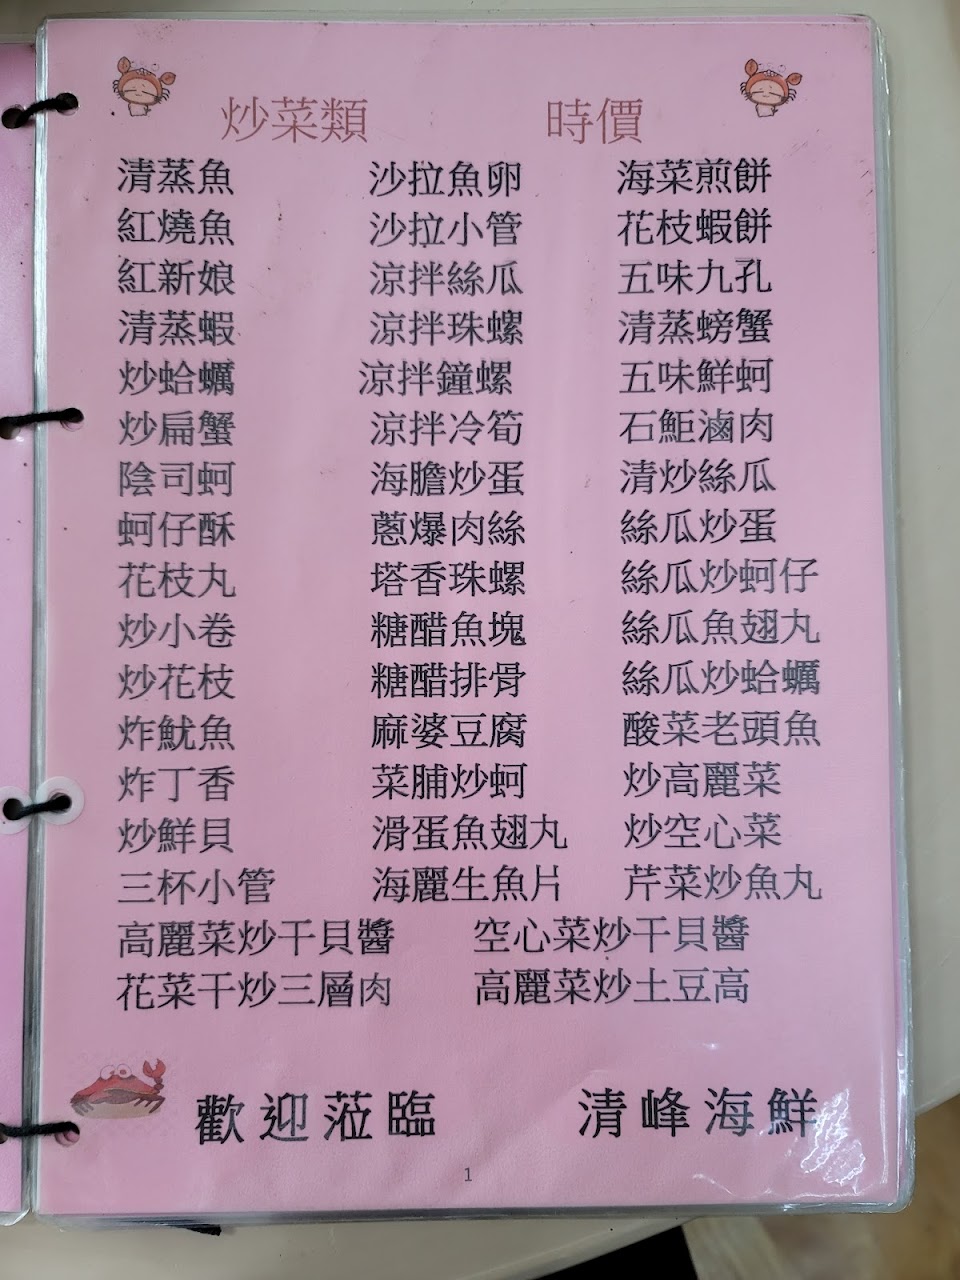 炒菜類 時價
清蒸魚 沙拉魚卵 海菜煎餅
紅燒魚 沙拉小管 花枝蝦餅
紅新娘 涼拌絲瓜 五味九孔
清蒸蝦 涼拌珠螺 清蒸螃蟹
炒蛤蠣 涼拌鐘螺 五味鮮蚵
炒扁蟹 涼拌冷筍 石鮔滷肉
陰司蚵 海膽炒蛋 清炒絲瓜
蚵仔酥 蔥爆肉絲 絲瓜炒蛋
花枝丸 塔香珠螺 絲瓜炒蚵仔
炒小卷 糖醋魚塊 絲瓜魚翅丸
炒花枝 糖醋排骨 絲瓜炒蛤蠣
炸魷魚 麻婆豆腐 酸菜老頭魚
炸丁香 菜脯炒蚵 炒高麗菜
炒鮮貝 滑蛋魚翅丸 炒空心菜
三杯小管 海麗生魚片 芹菜炒魚丸
高麗菜炒干貝醬 空心菜炒干貝醬
花菜干炒三層肉 高麗菜炒土豆高
歡迎蒞臨 清峰海鮮
1